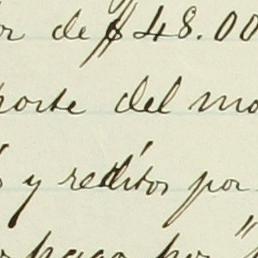 or de $48.00
porte del mo
s y reditos por
r pago por "